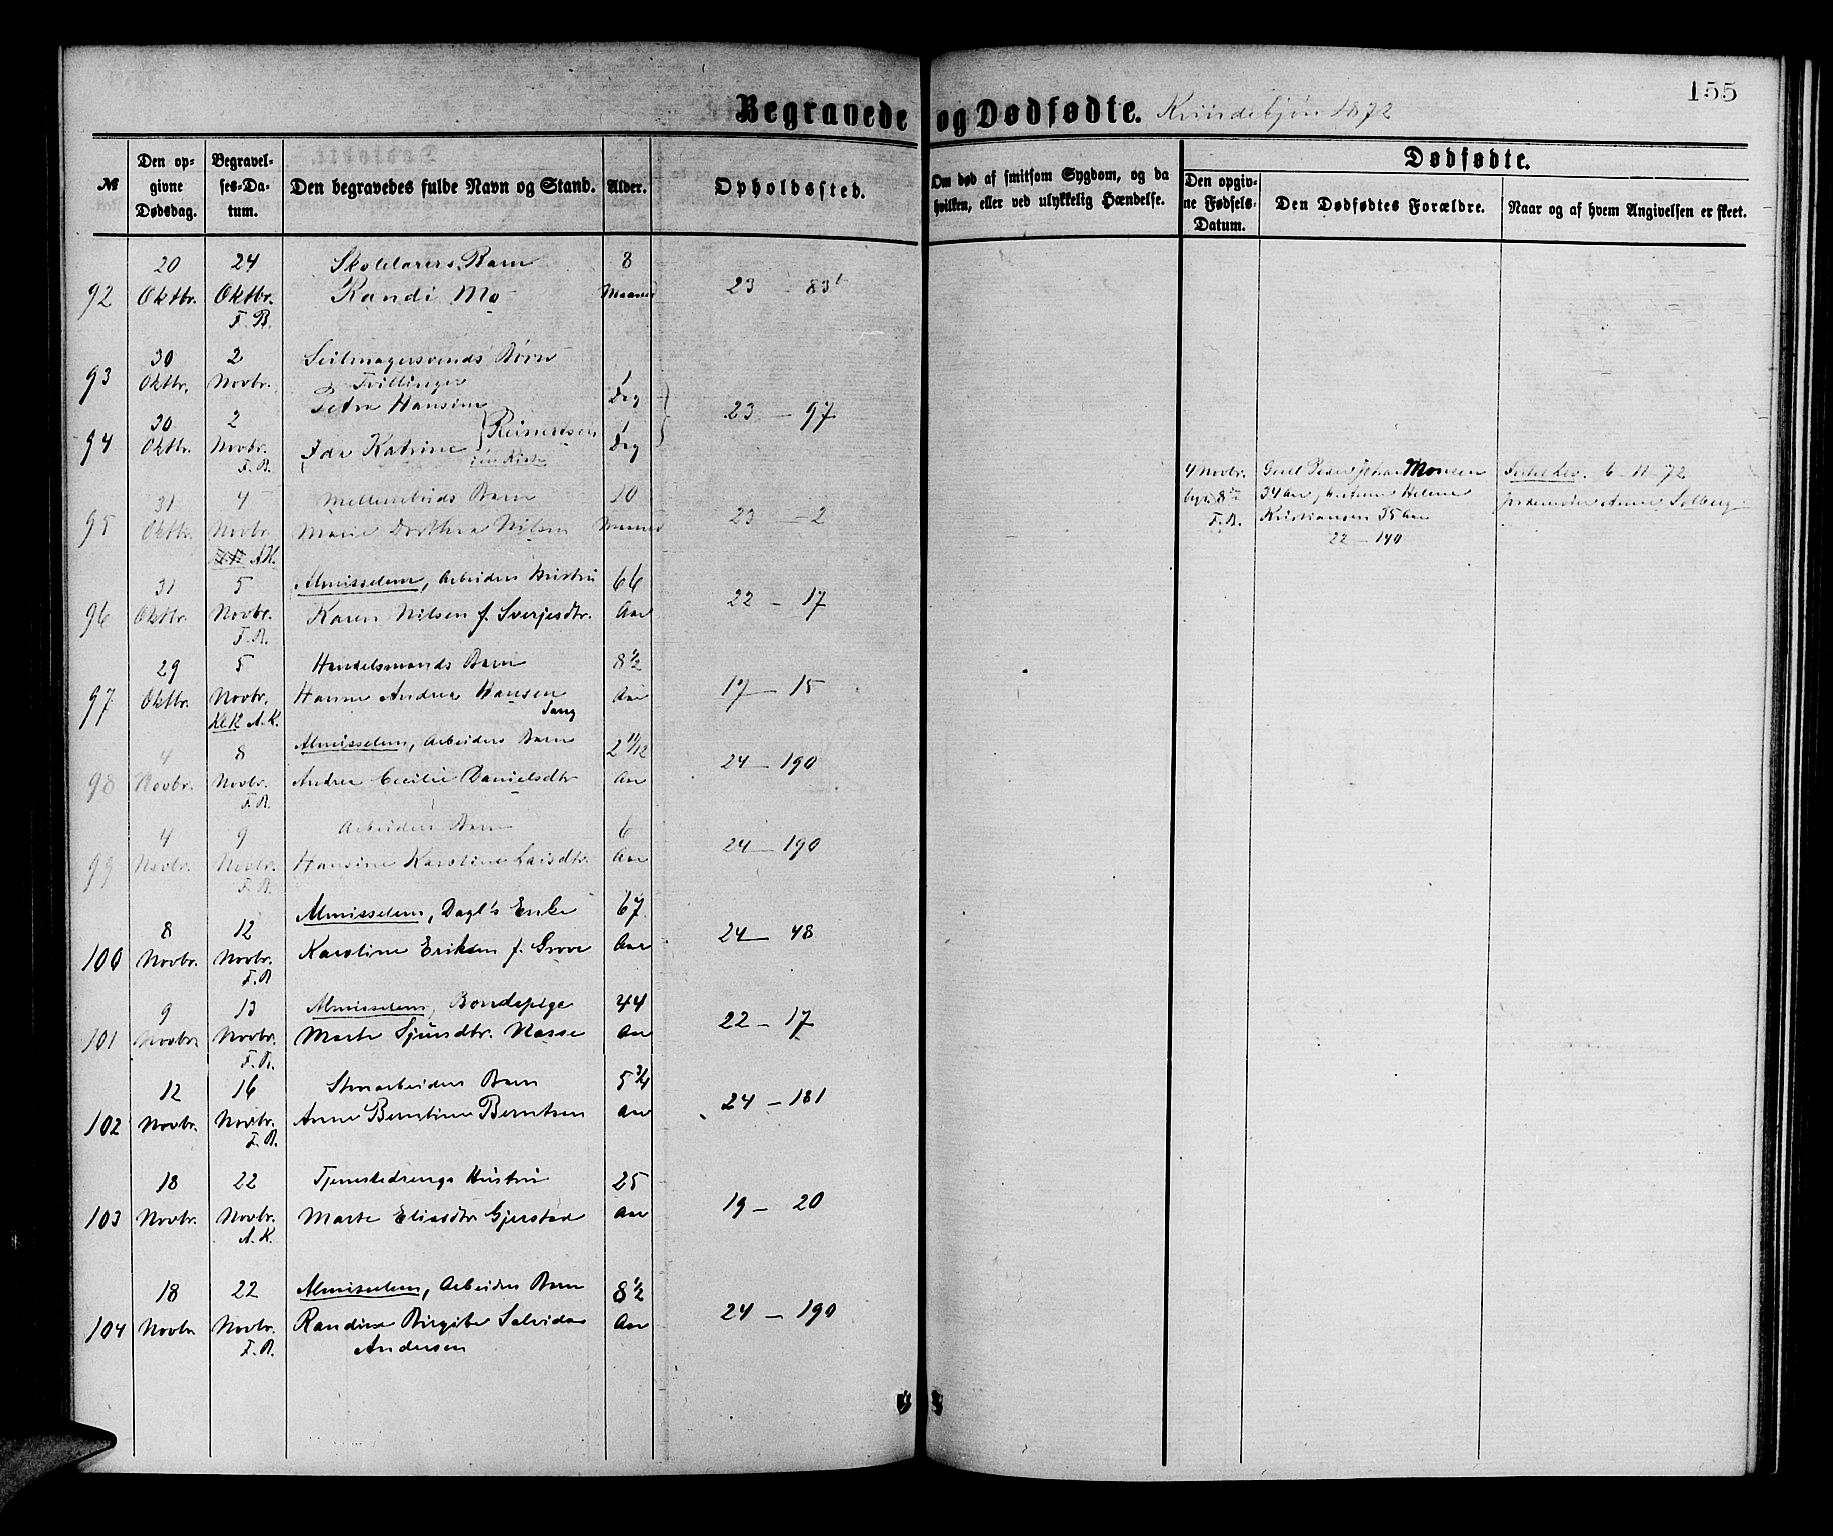 155
Begravede og Dødfødte. Kvindekjøn 1872
№
Den opgivne Dødsdag.
Begravelses-Datum.
Den begravedes fulde Navn og Stand.
Alder.
Opholdssted.
Om død af smitsom Sygdom, og da hvilken, eller ved ulykkelig Hændelse.
Dødfødte.
Den opgivne Fødsels-Datum.
Den Dødfødtes Forældre.
Naar og af hvem Angivelsen er skeet.
20 24 Skolelærers Barn 8
92 Oktbr. Oktbr. Randi Mo Maaned 23 - 83
F. B.
30 2 Seilmagersvends Børn
93 Oktbr. Novbr. Tvillinger 1
Petra Hansine Dag 23 - 97
30 2 Reinertsen 1
94 Oktbr. Novbr. Ida Katrine Dag
F. B.
31 4 Barn 10
95 Oktbr. Novbr. Marie Dorthea Nilsen Maaned 23 - 2
A.K.
31 5 Almisselem, Arbeiders Hustru 66
96 Oktbr. Novbr. Karen Nilsen f. Sverjesdtr. Aar 22 - 17
F. B.
29 5 Handelsmands Barn 8 1/2
97 Oktbr. Novbr. Hanne Andrea Hansen Aar 17 - 15
A.K.
4 8 Almisselem, Arbeiders Barn 2 11/12
98 Novbr. Novbr. Andrea Cecilie Danielsdtr Aar 24 - 190
F. B.
4 9 Arbeiders Barn 6
99 Novbr. Novbr. Hansine Karoline Larsdtr. Aar 24 - 190
F. B.
8 12 Almisselem, Dagl's Enke 67
100 Novbr. Novbr. Karoline Eriksen f. Grove Aar 24 - 48
F. B
9 13 Almisselem, Bondepige 44
101 Novbr. Novbr. Marte Sjursdtr. Nasse Aar 22 - 17
F. B.
12 16 Barn 5 3/4
102 Novbr. Novbr. Anne Berntine Berntsen Aar 24 - 181
F. B.
18 22 Tjenestedrengs Hustru 25
103 Novbr. Novbr. Marte Eliasdtr Gjerstad Aar 19 - 20
A. K.
18 22 Almisselem, Arbeiders Barn 8 1/2
104 Novbr Novbr. Randine Birgitte Aar 24 - 190
F. B. Andersen
4 Novbr. Peder Johan Monsen 6-11-72
34 Aar, Helene Jordemoder Anne Solberg
F. B. Kristiansen 35 Aar
22 - 140